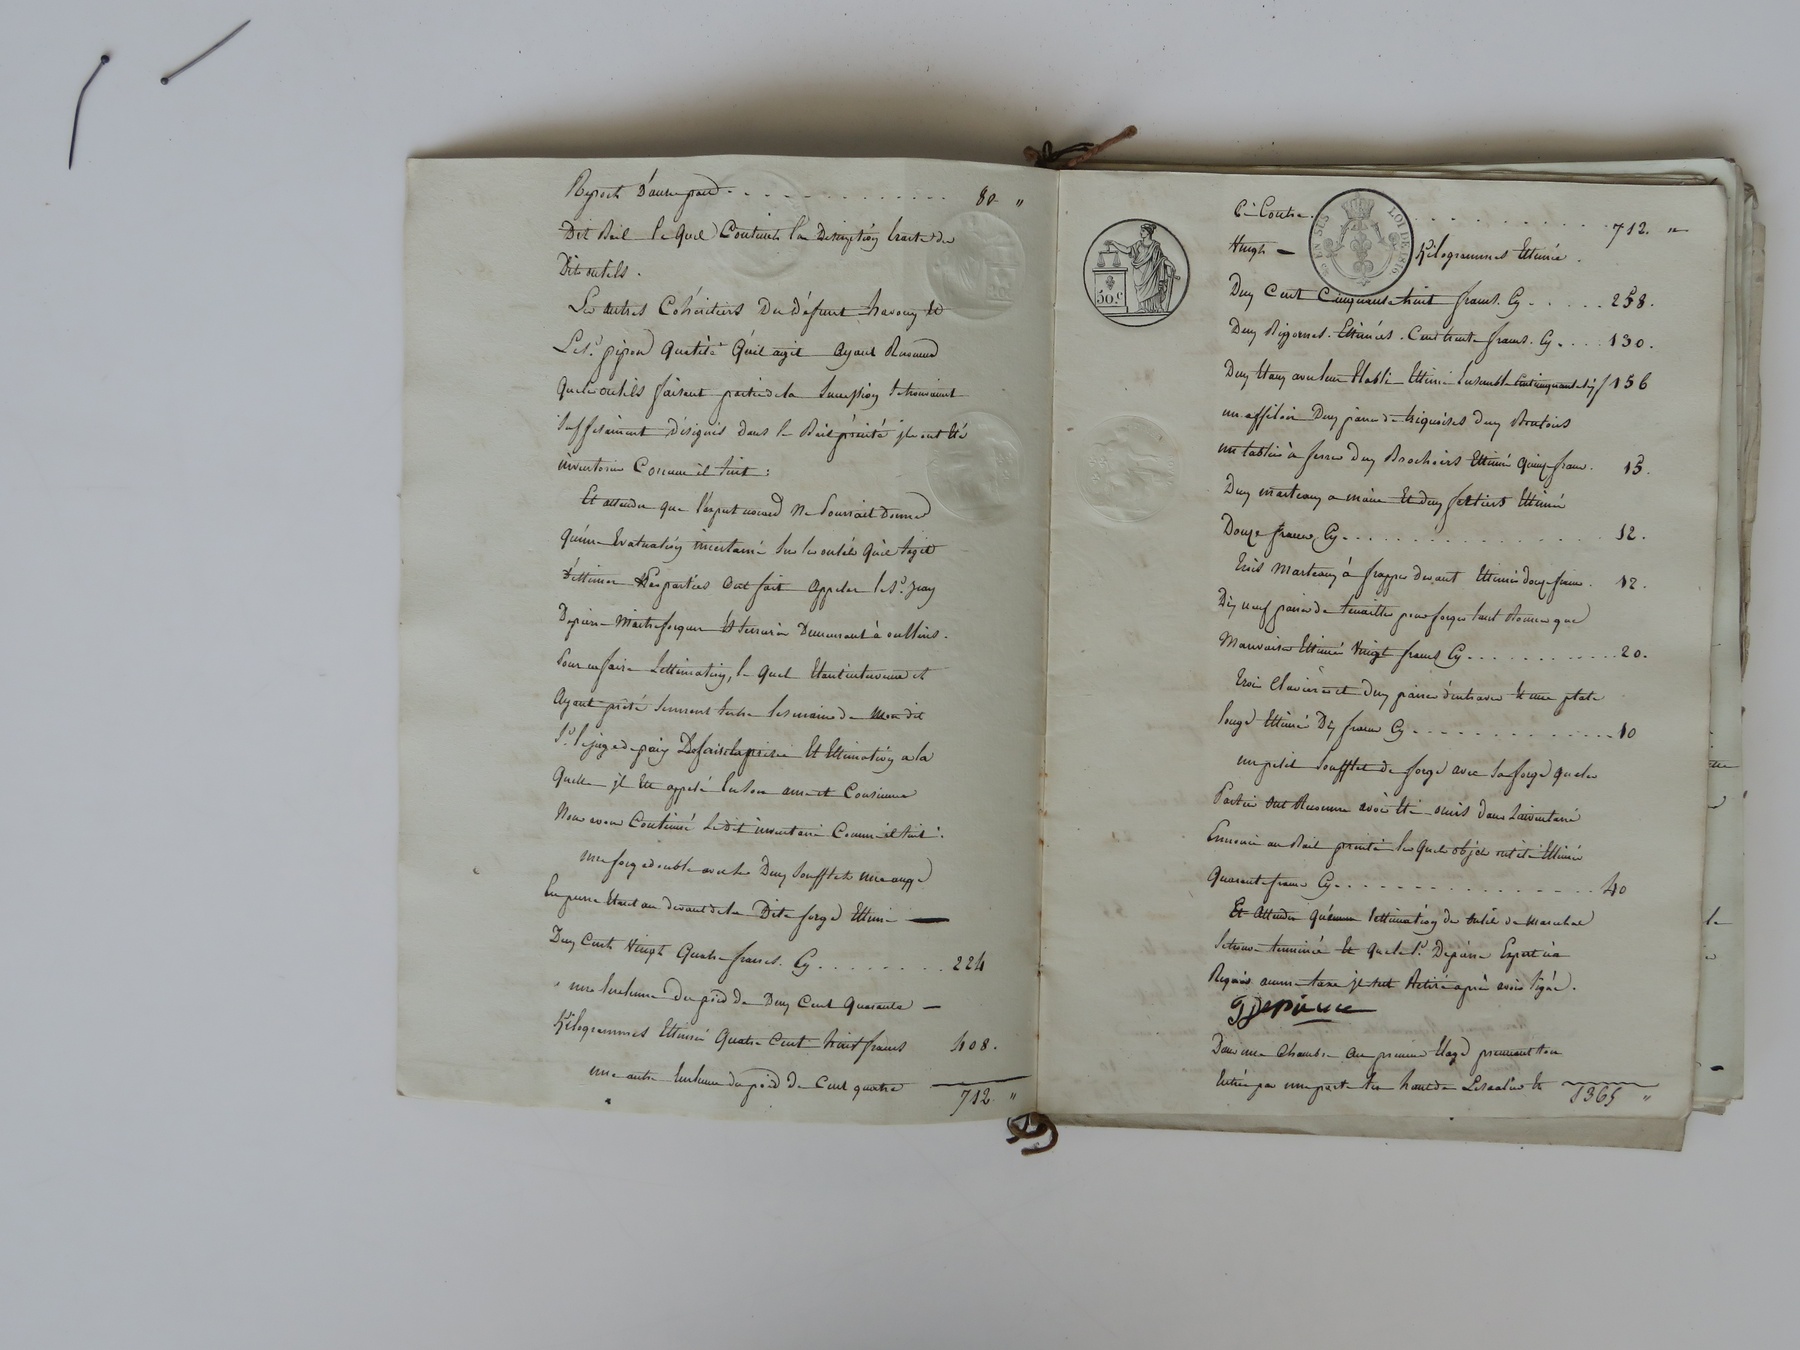 Report D'autre part . . . . . . . . . . . . . 80 "
Dit Bail le quel Contient la Description Exacte des
Dits outils .
Les autres Cohéritiers Du Défunt et
Le Sr. qualité qu'il agit ayant Reconnu
Que les outils faisant partie de la Succession se trouvaient
Suffisament désignés dans le Bail précité ils ont été
inventoriés Comme il suit :
Et attendu que l'expert nommé Ne Pourrait Donner
Qu'une Evaluation incertaine Sur les outils qu'il s'agit
D'estimer Les parties ont fait appeler le Sr. Jean
Depierre Maître forgeur Et serrurier Demeurant à oullins .
Pour en faire L'estimation, le quel Etant intervenu et
Ayant prêté Serment Entre les mains de Mon dit
Sr. le juge de paix De faire la prisée Et Estimation a la
Quelle il Est appelé En Son ame et Conscience
Nous avons Continué Le dit inventaire Comme il suit :
une forge double avec les Deux Soufflets une auge
En pierre Etant au devant de la Dite forge Estimée
Deux Cents Vingt Quatre francs . Cy . . . . . . . . 224
une Enclume du poid de Deux Cent Quarante
Kilogrammes Estimée Quatre Cent huit francs 408 .
une autre Enclume du poid De Cent quatre
712 "
Ci Contre . . . . . . . . . . . 712 . "
Vingt Kilogrammes Estimée .
EN SUS LOI DE 1816
50 c
Deux Cent Cinquante huit francs . Cy . . . . . 258 .
Deux Bigornes . Estimées . Cent trente francs . Cy . . . . 130 .
Deux Etaux avec leur Etabli Estimé Ensemble Cent cinquante six f 156
un affiloir Deux paires de triquoises deux Boutoirs
un tablier à ferrer Deux Brochoirs Estimé Quinze francs . 15 .
Deux marteaux a main Et Deux Estimés
Douze francs Cy . . . . . . . . . . . . . . . . 12 .
Trois Marteaux à frapper Devant Estimés douze francs . 12 .
Dix neuf paires de tenailles pour forger tant Bonnes que
Mauvaises Estimé Vingt francs Cy . . . . . . . . . . . 20 .
Trois Clavières et Deux paires d'entraves Et une plate
longe Estimé Dix francs Cy . . . . . . . . . . . . . 10
un petit Soufflet de forge avec Sa forge que les
Parties ont Reconnu avoir Eté omis dans L'inventaire
Enoncé au Bail précité les quels objets ont été Estimés
Quarante francs Cy . . . . . . . . . . . . . . . . 40
Et Attendu Qu'ici L'estimation des outils de Marechal
Se trouve terminée Et que le Sr. Depierre Expert n'a
Requis aucune taxe il s'est Retiré après avoir signé .
JDepierre
Dans une Chambre Au premier Etage prenant Son
Entrée par une porte au haut de L'escalier Et
1365 "